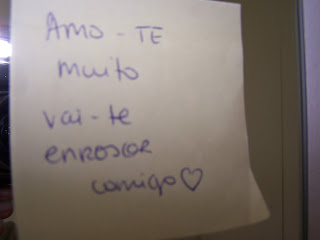 Amo-TE
muito
vai-te
enroscar
comigo♡